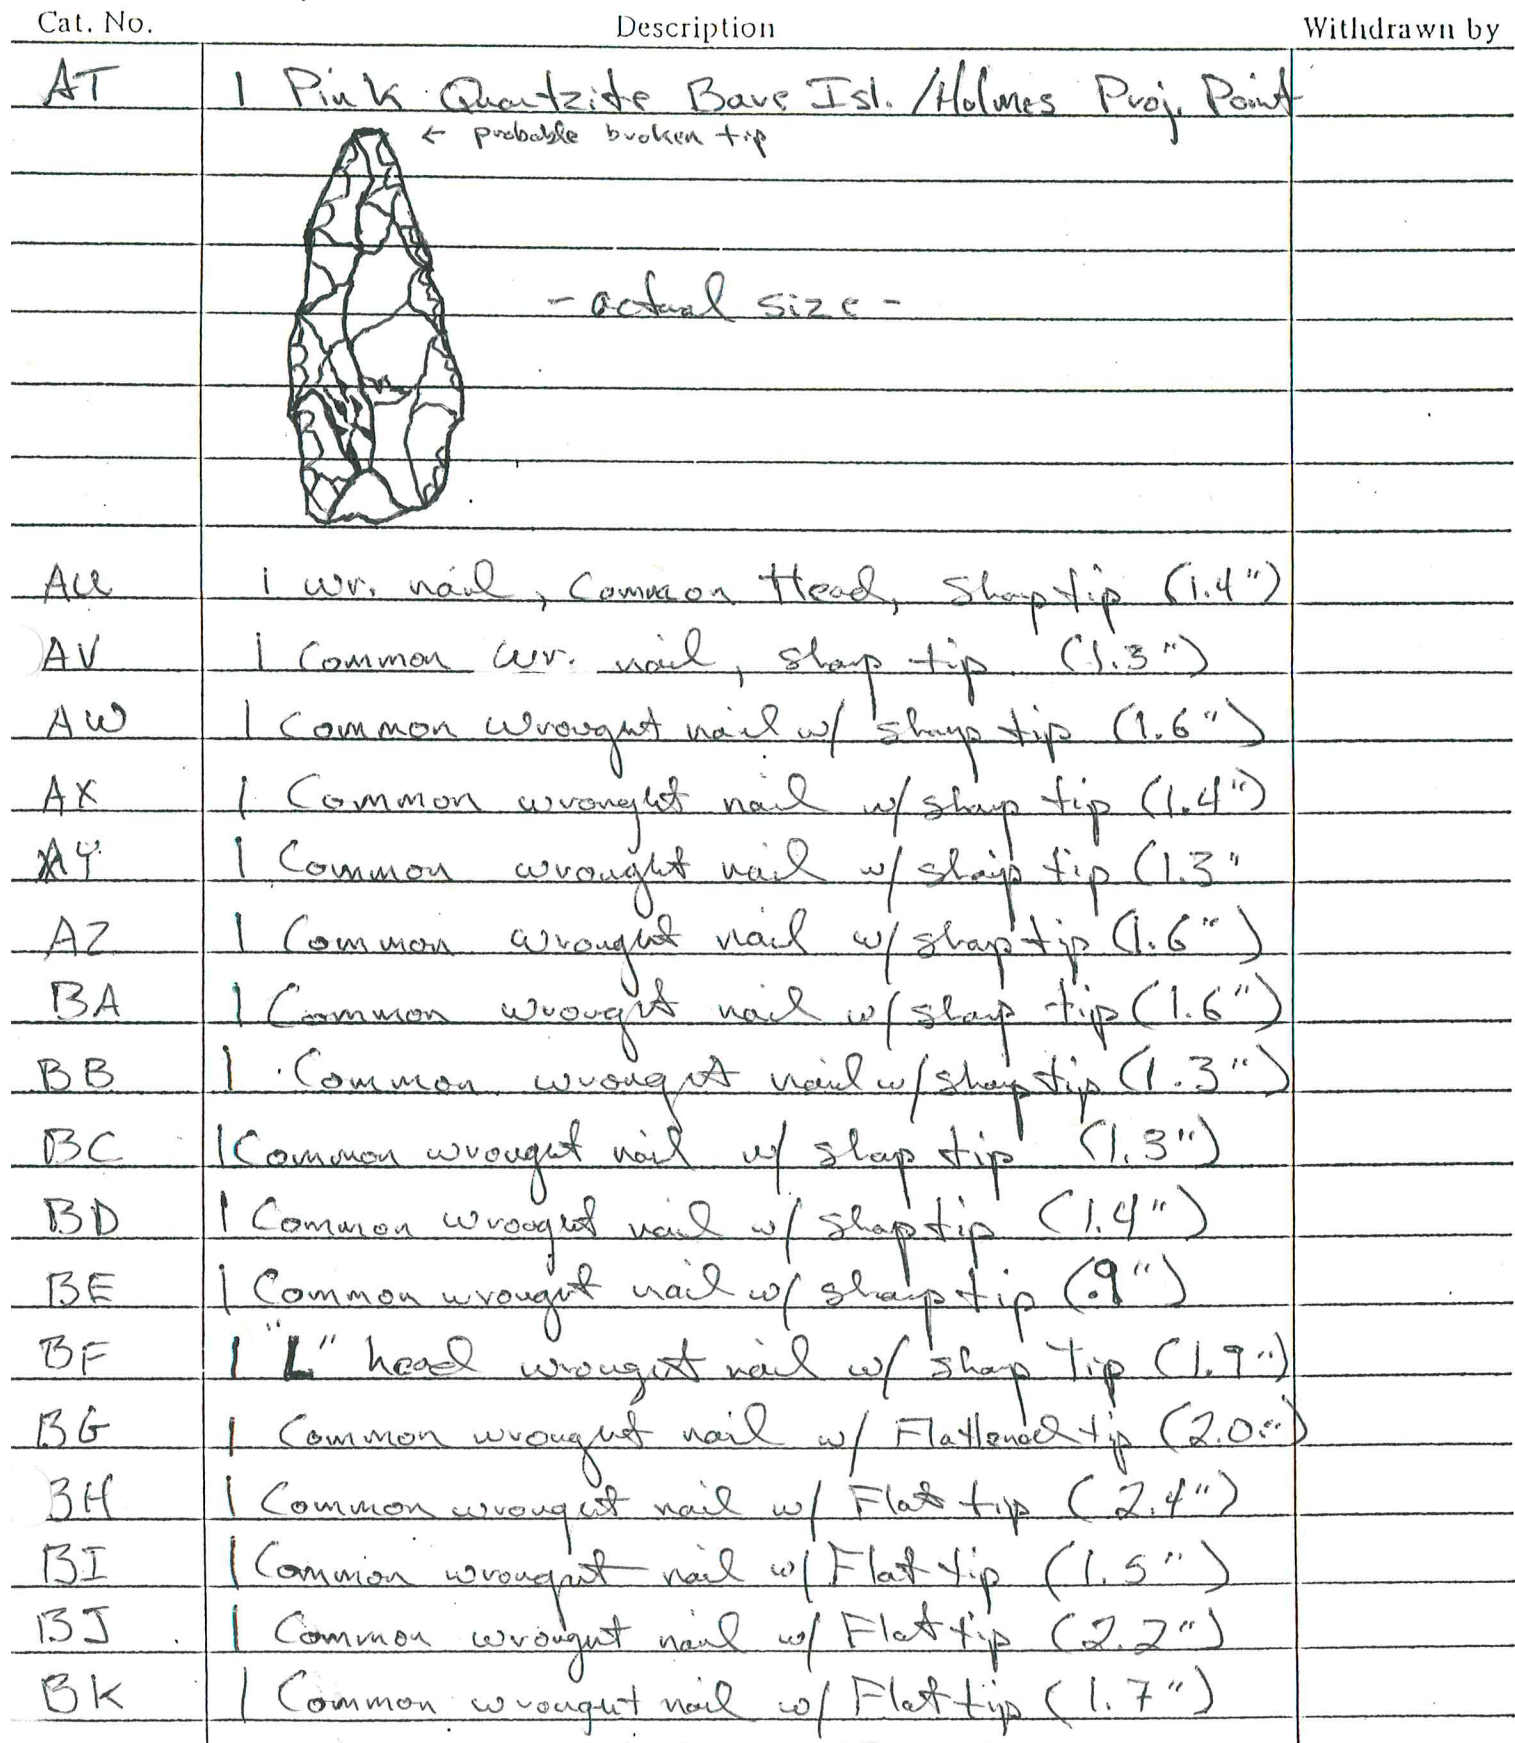 Cat. No. Description Withdrawn by
AT 1 Pink Quartzite Bare Isl. /Holmes Proj. Point
← probable broken tip
- actual size -
AU 1 wr. nail, Common Head, Sharp tip (1.4")
AV 1 Common wr. nail, sharp tip (1.3")
AW 1 Common wrought nail w/ sharp tip (1.6")
AX 1 Common wrought nail w/ sharp tip (1.4")
AY 1 Common wrought nail w/ sharp tip (1.3"
AZ 1 Common wrought nail w/ sharp tip (1.6")
BA 1 Common wrought nail w/ sharp tip (1.6")
BB 1 Common wrought nail w/ sharp tip (1.3")
BC 1 Common wrought nail w/ sharp tip (1.3")
BD 1 Common wrought nail w/ sharp tip (1.4")
BE 1 Common wrought nail w/ sharp tip (.9")
BF 1 "L" head wrought nail w/ sharp tip (1.9")
BG 1 Common wrought nail w/ Flattened tip (2.0")
BH 1 Common wrought nail w/ Flat tip (2.4")
BI 1 Common wrought nail w/ Flat tip (1.5")
BJ 1 Common wrought nail w/ Flat tip (2.2")
BK 1 Common wrought nail w/ Flat tip (1.7")